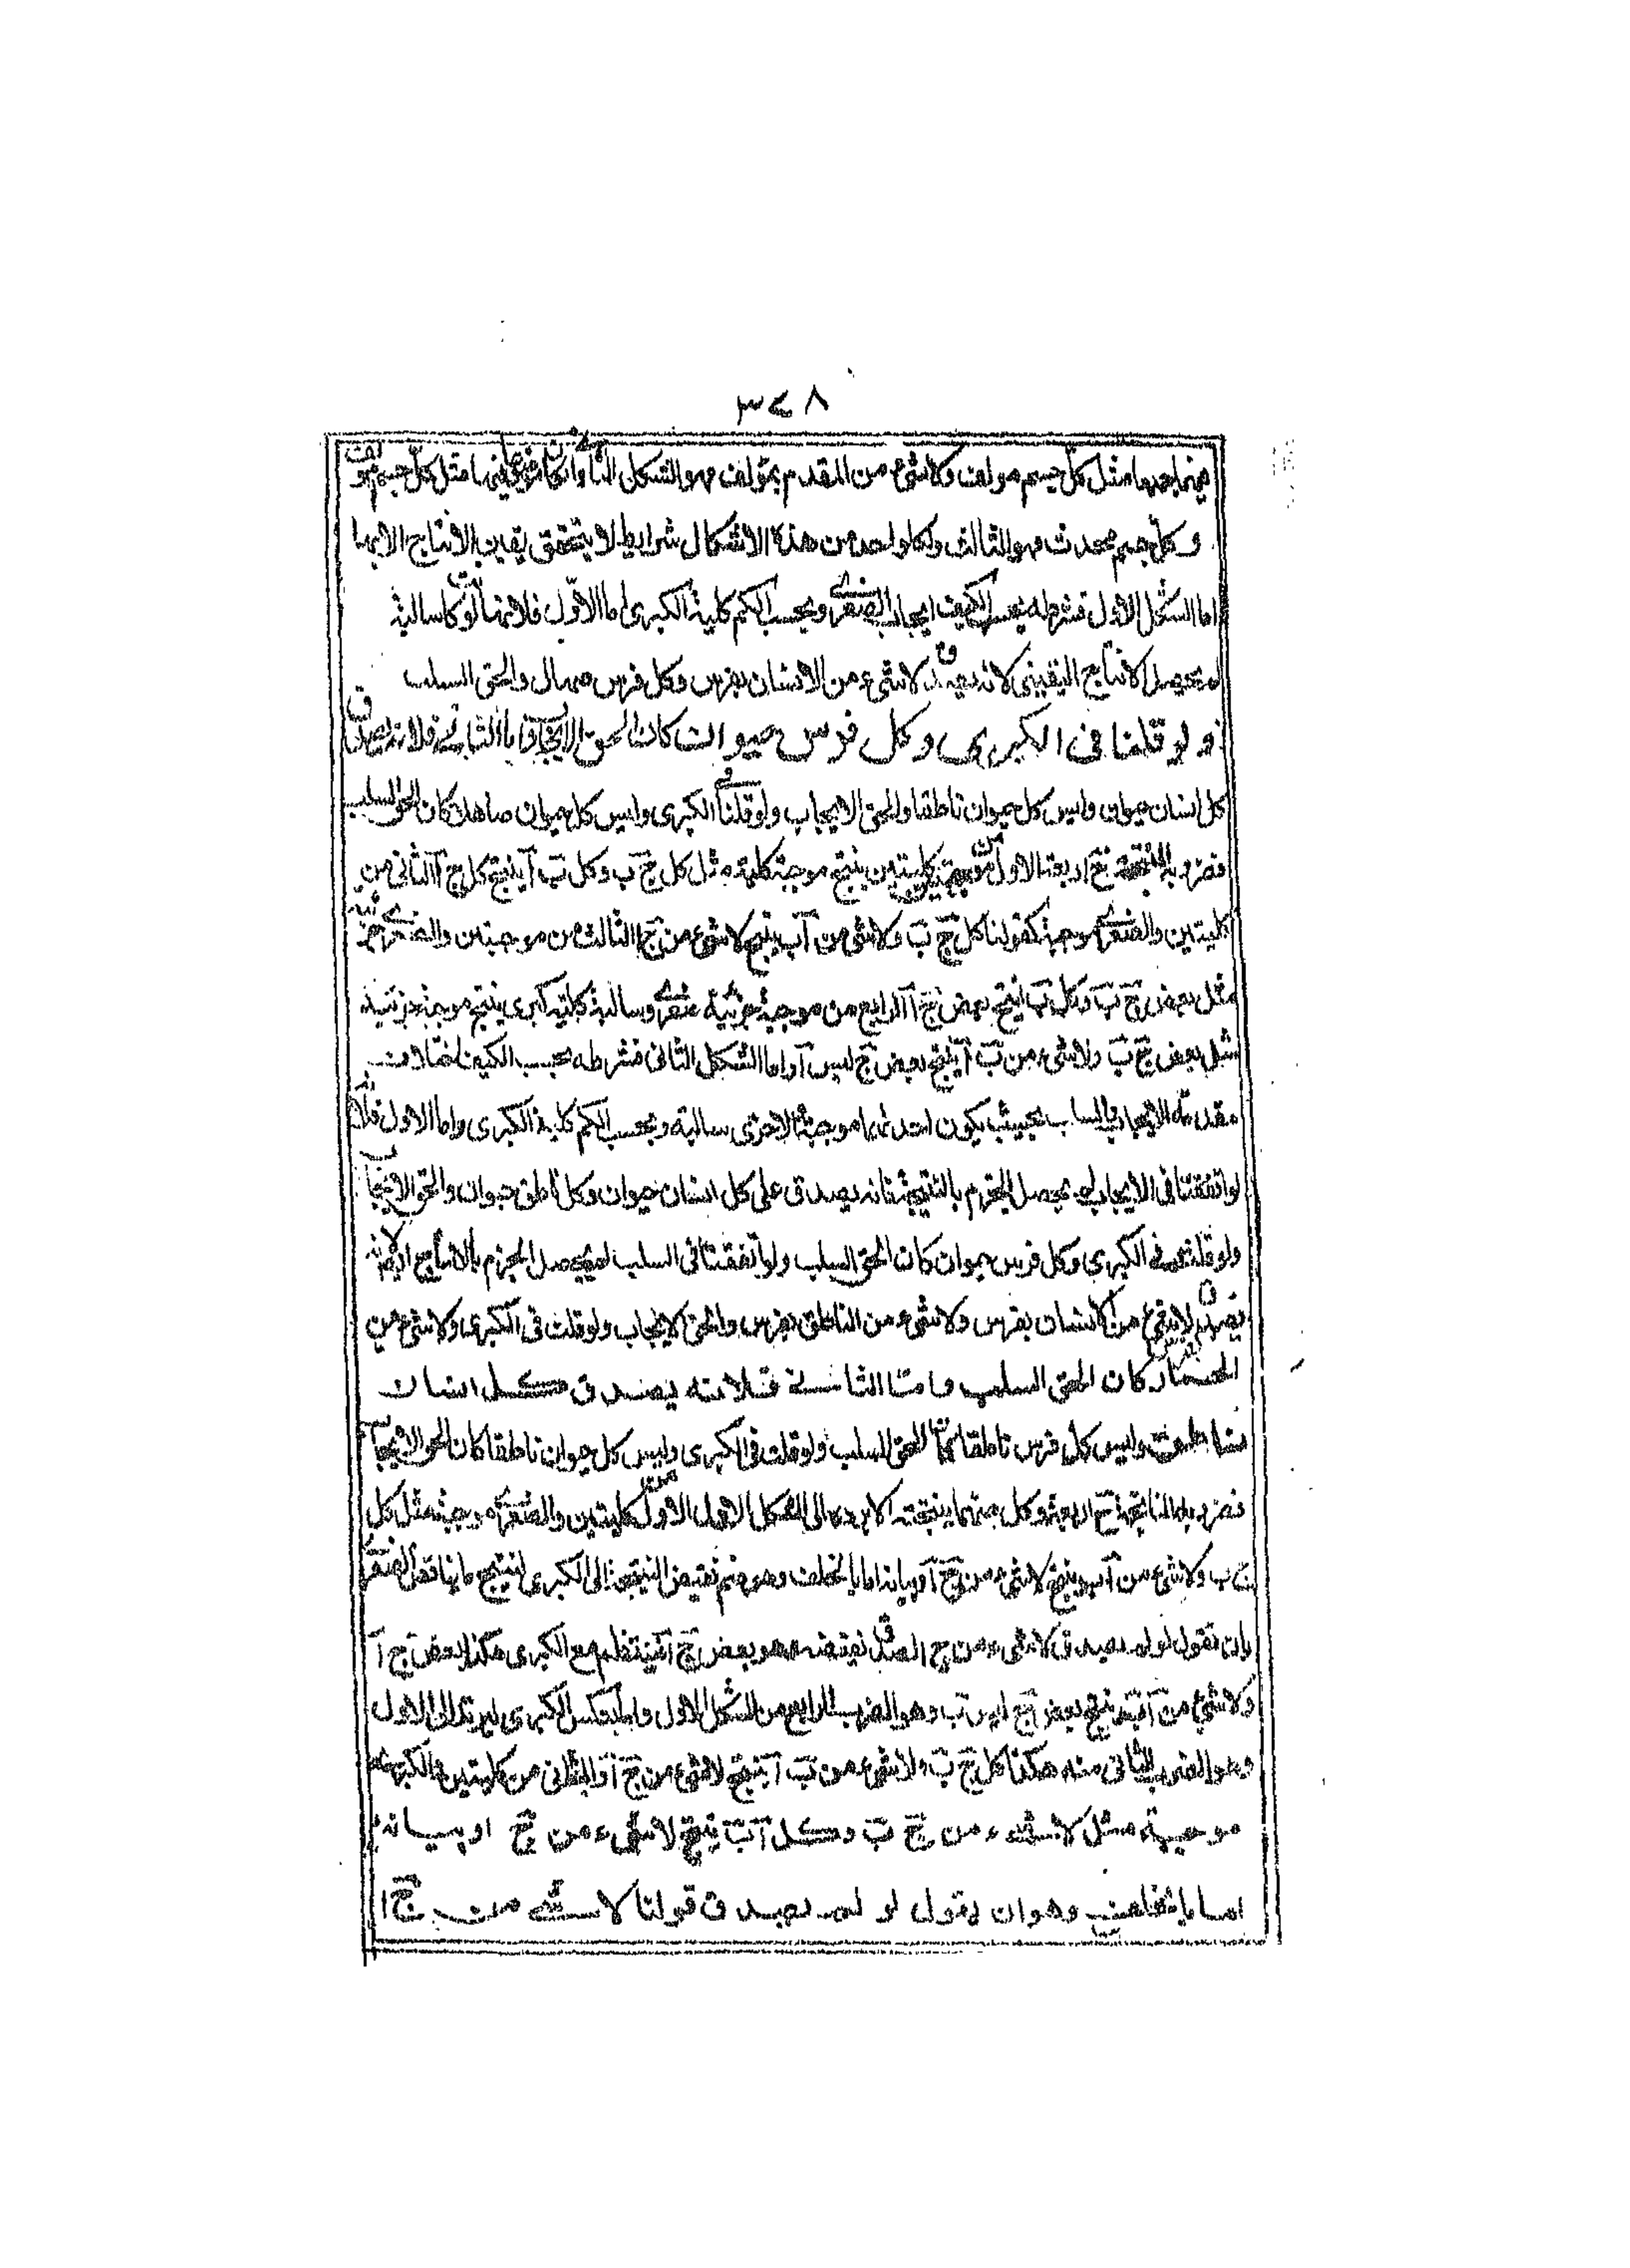 ٣٧٨
مثل كل جسم مولف ولاشىء من القديم بمؤلف فهو الشكل الثانى وان كان موضوعا فيهما مثل كل جسم مولف
وكل جسم محدث فهو الثالث ولكل واحد من هذه الاشكال شرايط لا يتحقق يقين الانتاج الا بها
اما الشكل الاول فشرطه بحسب الكيف ايجاب الصغرى وبحسب الكم كلية الكبرى اما الاول فلانها لو كانت سالبة
لم يحصل الانتاج اليقينى لانه يصدق لاشىء من الانسان بفرس وكل فرس صهال والحق السلب
ولو قلنا فى الكبرى وكل فرس حيوان كان الحق الايجاب واما الثانى فلانه يصدق
كل انسان حيوان وليس كل حيوان ناطقا والحق الايجاب ولو قلنا فى الكبرى وليس كل حيوان صاهلا كان الحق السلب
فضروبه المنتجة اربعة الاول من موجبتين كليتين ينتج موجبة كلية مثل كل ج ب وكل ب آ ينتج كل ج آ الثانى من
كليتين والصغرى موجبة كقولنا كل ج ب ولاشىء من آ ب ينتج لاشىء من ج ا الثالث من موجبتين والصغرى جزئية
مثل بعض ج ب وكل ب ا ينتج بعض ج آ الرابع من موجبة جزئية صغرى وسالبة كلية كبرى ينتج موجبة جزئية
مثل بعض ج ب ولاشىء من ب آ ينتج بعض ج ليس آ واما الشكل الثانى فشرطه بحسب الكيف اختلاف
مقدمتيه بالايجاب والسلب بحيث يكون احدىهما موجبة والاخرى سالبة وبحسب الكم كلية الكبرى واما الاول فلانه
لو اتفقتا فى الايجاب لم يحصل الجزم بالنتيجة فانه يصدق على كل انسان حيوان وكل ناطق حيوان والحق الايجاب
ولو قلت فى الكبرى وكل فرس حيوان كان الحق السلب ولو اتفقتا فى السلب لم يحصل الجزم بالانتاج ايضا لانه
يصدق لاشىء من الانسان بفرس ولاشىء من الناطق بفرس والحق الايجاب ولو قلت فى الكبرى ولاشىء من
الحمار كان الحق السلب واما الثانية فلانه يصدق كل انسان
ناطق وليس كل فرس ناطقا كان الحق السلب ولو قلت فى الكبرى وليس كل حيوان ناطقا كان الحق الايجاب
فضروبه الناتجة اربعة وكل منها ينتجه الا برده الى الشكل الاول الاول من كليتين والصغرى موجبة مثل كل
ج ب ولاشىء من آ ب ينتج لاشىء من ج آ وبيانه اما بالخلف وهو ضم نقيض النتيجة الى الكبرى لينتج ما يناقض الصغرى
بان نقول لو لم يصدق لاشىء من ج ا لصدق نقيضه وهو بعض ج آ فينتظم مع الكبرى هكذا بعض ج آ
ولاشىء من آ ب ينتج بعض ج ليس ب وهو الضرب الرابع من الشكل الاول واما بعكس الكبرى ليرتد الى الاول
وهو الضرب الثانى منه هكذا كل ج ب ولاشىء من ب آ ينتج لاشىء من ج آ والثانى من كليتين والكبرى
موجبة مثل لاشىء من ج ب وكل آ ب ينتج لاشىء من ج ا وبيانه
اما بالخلف وهو ان نقول لو لم يصدق قولنا لاشىء من ج ا